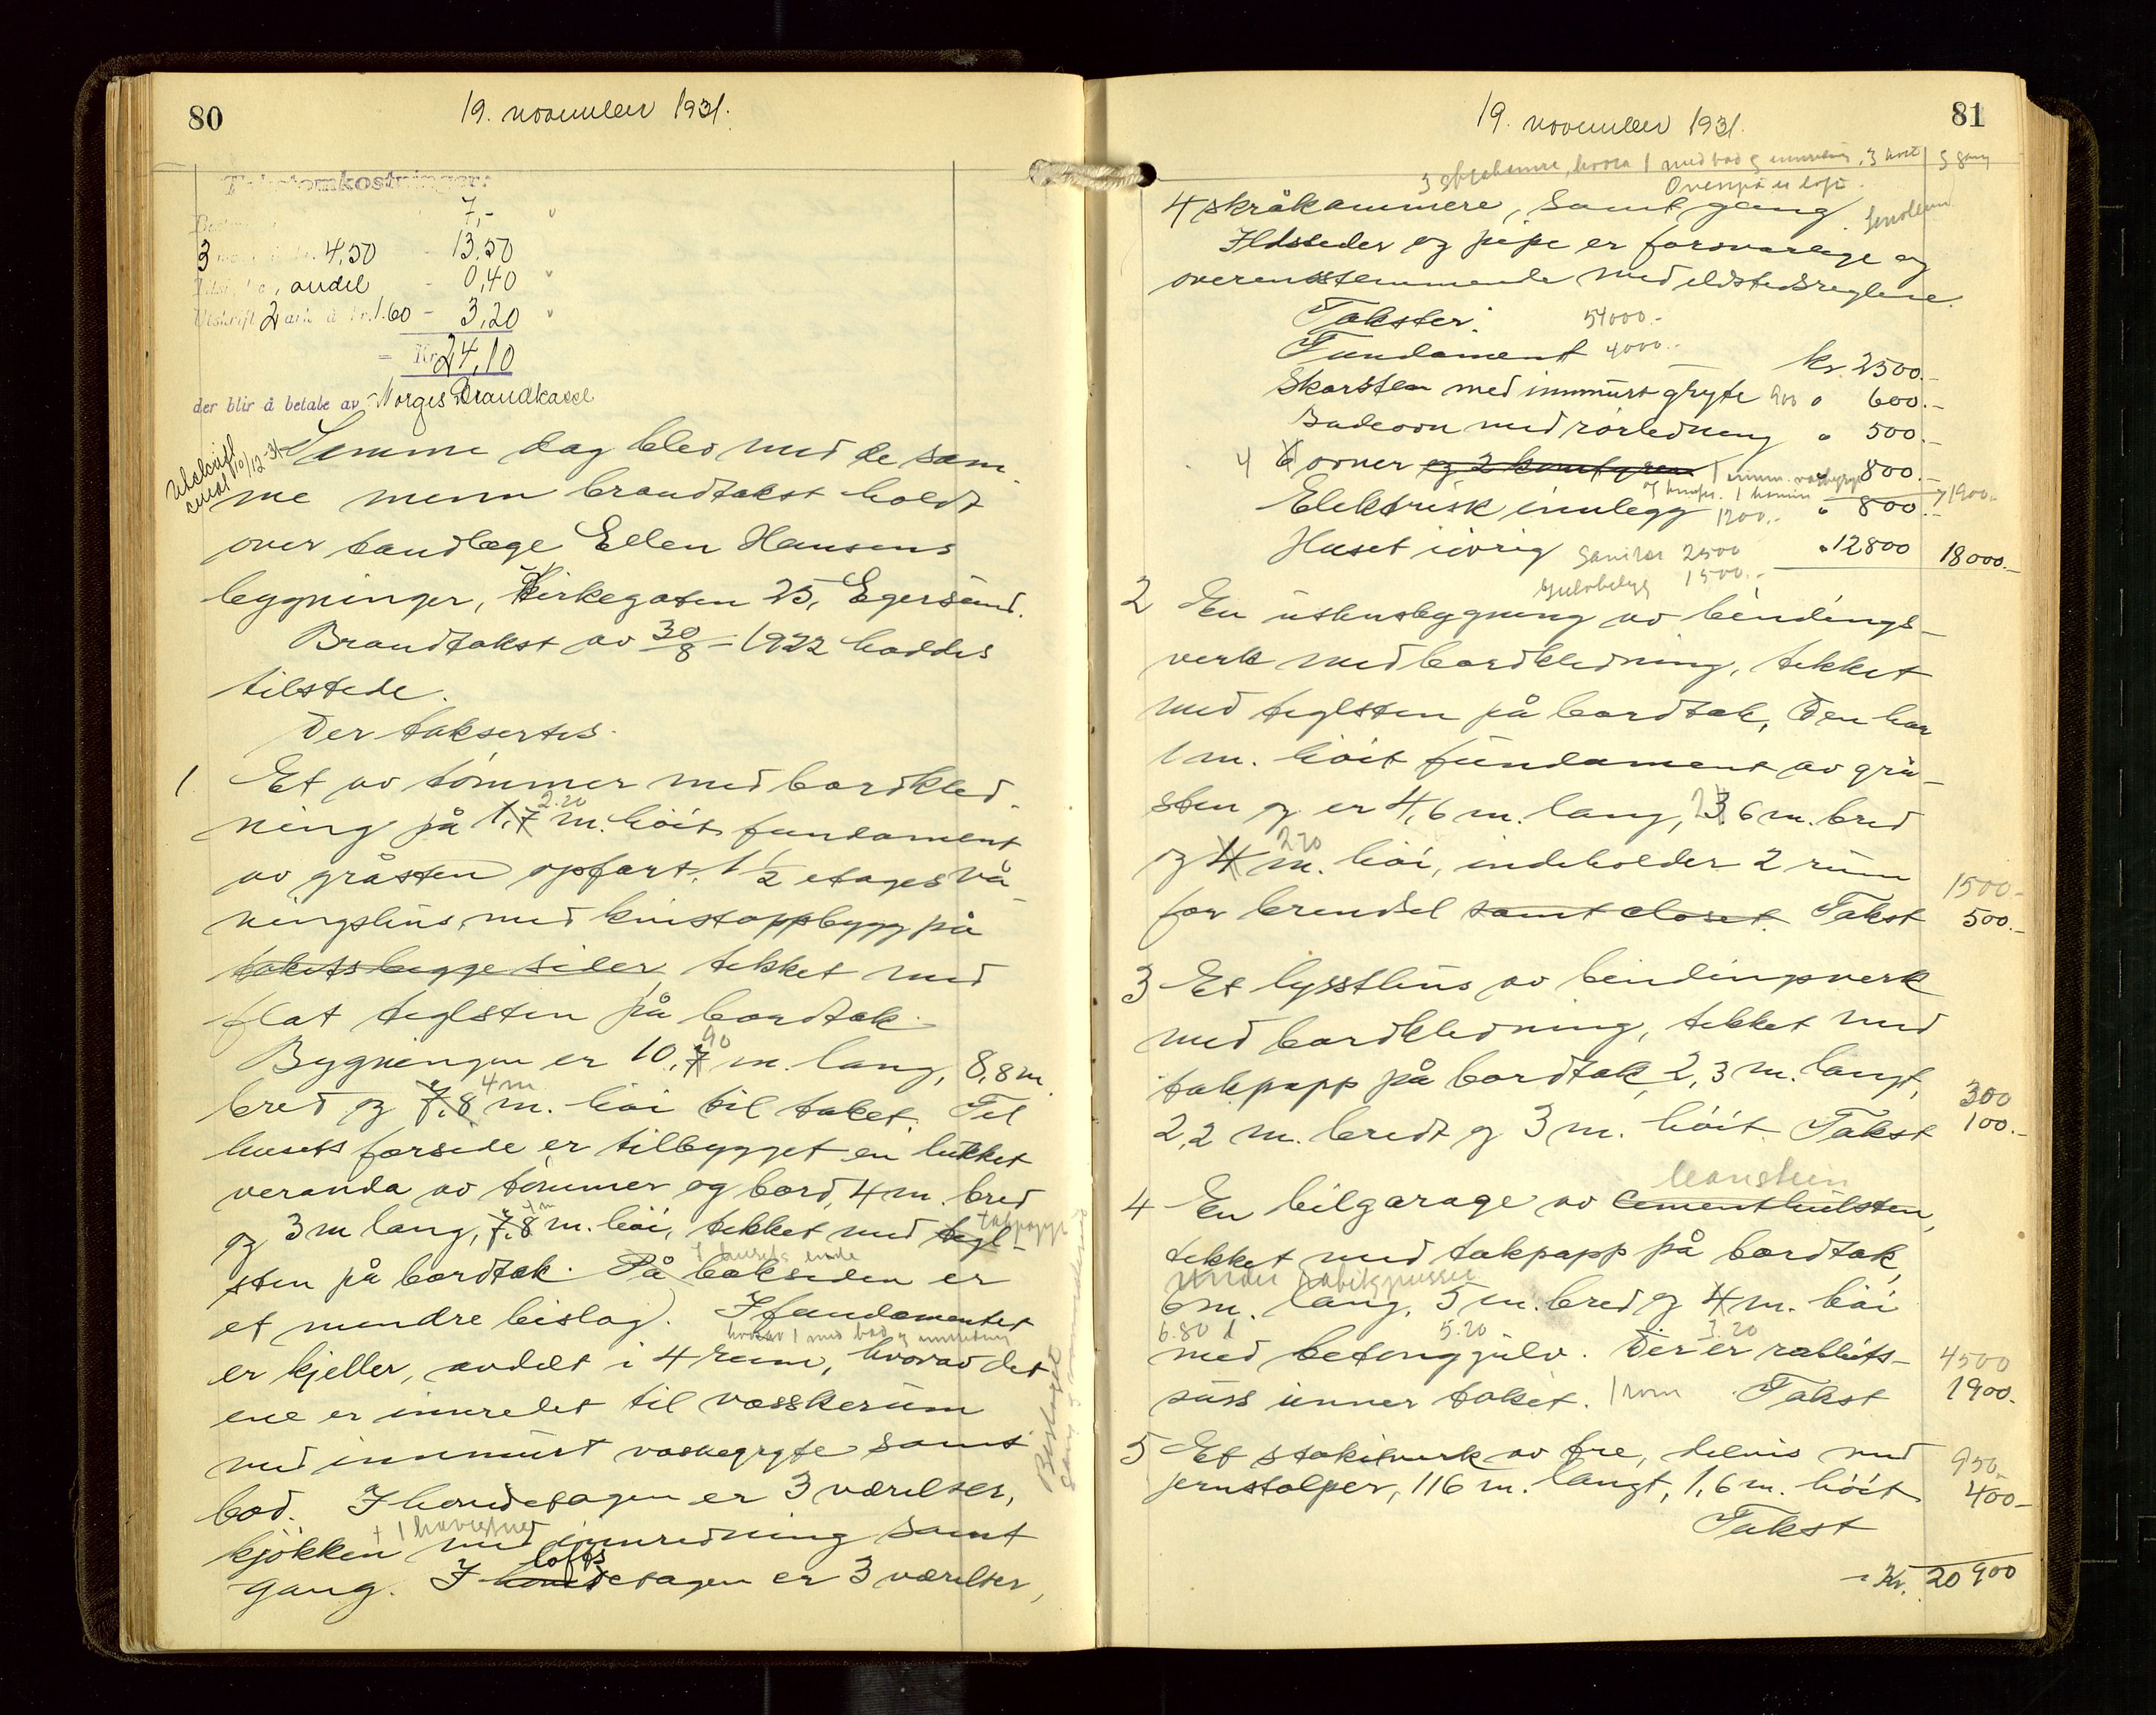 80
19. november 1931.
Takstomkostninger:
7,-
3 4,50 - 13,50
andel - 0,40
Utskrift 2 ark à kr. 1.60 - 3,20
= Kr. 24,10
der blir å betale av Norges Brandkasse
Utskrift
10/12-31
Samme dag blev med de sam-
me menn brandtakst holdt
over tandlæge Ellen Hansens
bygninger, Kirkegaten 25, Egersund.
Brandtakst av 30/8 - 1922 haddes
tilstede.
Der taksertes.
1. Et av tömmer med bordkled-
2.20
ning på 1,7 m. höit fundament
av gråsten opfört, 1 1/2 etages vå-
ningshus, med kvistoppbygg på
takets begge sider, tekket med
flat teglsten på bordtak.
90
Bygningen er 10,7 m. lang, 8,8 m.
4 m
bred og 7,8 m. höi til taket. Til
husets forside er tilbygget en lukket
veranda av tömmer og bord, 4 m. bred
4 m
og 3 m lang, 7,8 m. höi, tekket med tegl-
takpapp
sten på bordtak. På baksiden er
I husets ende
et mindre bislag. I fundamentet
hvorav 1 med bad og innredning
er kjeller, avdelt i 4 rum, hvorav det
ene er innredet til vasskerum
med innmurt vaskegryte samt
bad. I hovedetagen er 3 værelser,
+ 1 kavristned
kjökken med innredning samt
lofts
gang. I hovedetagen er 3 værelser,
81
19. november 1931.
Ovenpå er loft.
4 skråkammere, samt gang.
Ildsteder og pipe er forsvarlige og
overensstemmende med ildstedsreglene.
Takster: 54000.-
Fundament 4000.- kr. 2500.-
Skorsten med innmurt gryte 900 " 600.-
Badeovn med rörledning " 500.-
4 6 ovner og 2 komfyrer " 800.-
Elektrisk innlegg 1200.- " 800.- 71900.-
Huset iövrig " 12800 18000.-
Sanitær 2500
Gulvbelegg 1500.-
2 En uthusbygning av bindings-
verk med bordkledning, tekket
med teglsten på bordtak. Den har
1 m. höit fundament av grå-
sten og er 4,6 m. lang, 3,6 m. bred
2 20
og 4 m. höi, indeholder 2 rum
1500.-
for brendsel samt closet. Takst 500.-
3 Et lyssthus av bindingsverk
med bordkledning, tekket med
takpapp på bordtak, 2,3 m. langt,
300
2,2 m. bredt og 3 m. höit. Takst 100.-
4 En bilgarage av cementhulsten,
tekket med takpapp på bordtak,
6 m. lang, 5 m. bred og 4 m. höi
6.80 5.20 3.20
med betonggulv. Der er rabbits-
4500
puss unner taket. 1 rom Takst 1900.
5 Et stakitverk av tre, delvis med
950.
jernstolper, 116 m. langt, 1,6 m. höit
400.-
Takst
= Kr. 20 900